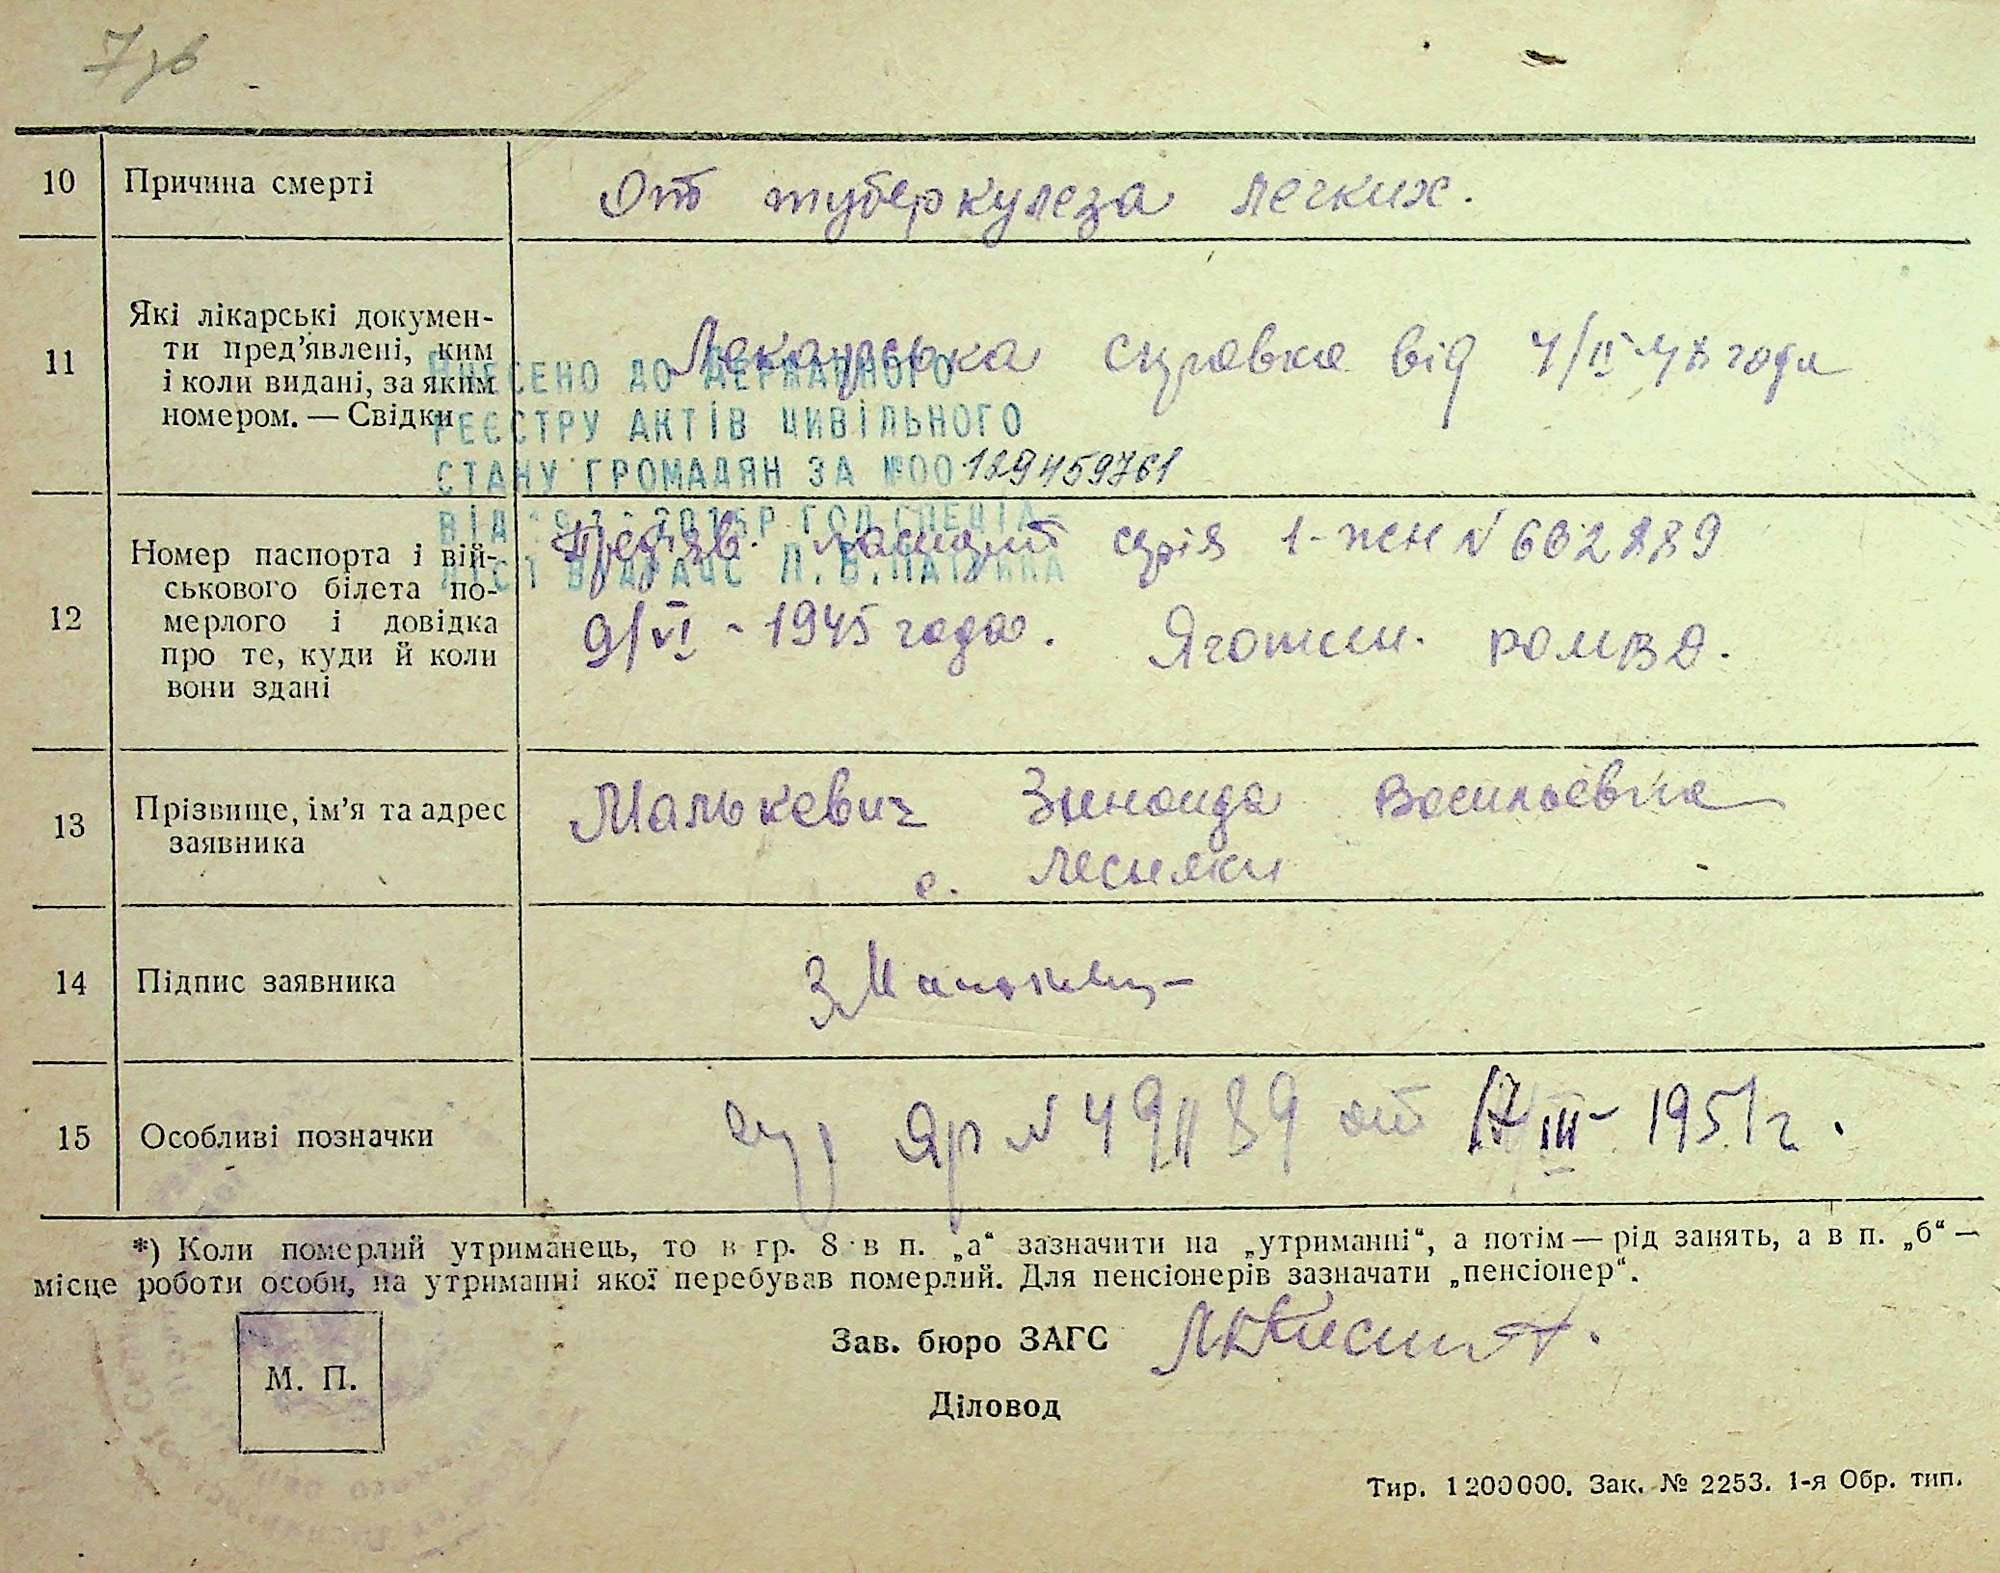 7зв
10 Причина смерті От туберкулеза легких.
11 Які лікарські докумен-
ти пред'явлені, ким
і коли видані, за яким
номером. — Свідки
Лекарська справка від 4/II-47 года
ВНЕСЕНО ДО ДЕРЖАВНОГО
РЕЄСТРУ АКТІВ ЦИВІЛЬНОГО
СТАНУ ГРОМАДЯН ЗА №00129459761
12 Номер паспорта і вій-
ськового білета по-
мерлого і довідка
про те, куди й коли
вони здані
паспорт серія 1-ЖСН N 602889
9/VI - 1945 года. Яготин. РОМВД.
13 Прізвище, ім'я та адрес
заявника
Малькевич Зинаида Васильевна
с. Лесняки
14 Підпис заявника
15 Особливі позначки
ЯР N 49 от III - 1951 г.
*) Коли померлий утриманець, то в гр. 8 в п. „а“ зазначити на „утриманні“, а потім — рід занять, а в п. „б“ —
місце роботи особи, на утриманні якої перебував померлий. Для пенсіонерів зазначати „пенсіонер“.
М. П.
Зав. бюро ЗАГС
Діловод
Тир. 1200000. Зак. № 2253. 1-я Обр. тип.